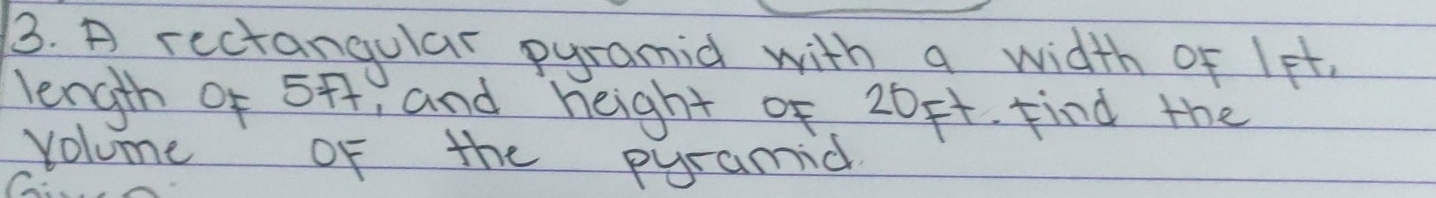 3. A rectangular pyramid with a width of 1ft,
length of 5ft, and height of 20ft. Find the
Volume of the pyramid.